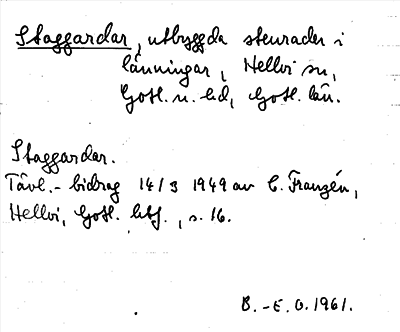 Staggardar, utbyggda stenrader i
länningar, Hellvi sn,
Gotl. n. hd, Gotl. län.
Staggardar.
Tävl.- bidrag 14/3 1949 av C. Franzén,
Hellvi, Gotl. , s. 16.
B.-E. O. 1961.